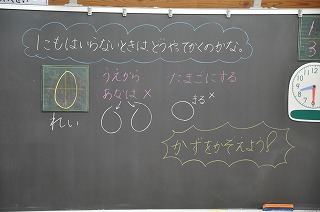 にもはいらないときはどうやってかくのかな。
うえから
あなは×
たまごにする
まる×
0
れい
かずをかぞえよう!
1
3